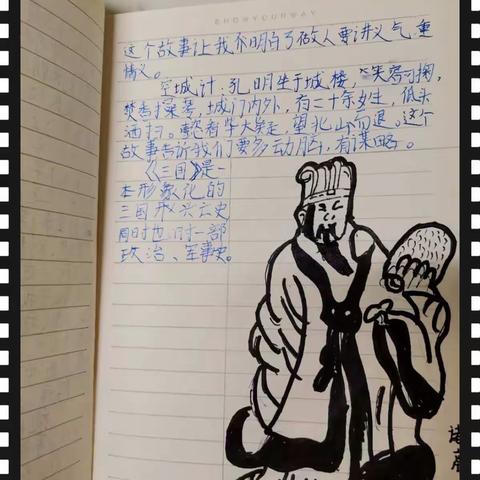 SHOWYOURWAY
这个故事让我们明白了做人要讲义气,重
情义。
空城计:孔明坐于城楼,笑容可掬,
焚香操琴,城门内外,有二十余女生,低头
洒扫。懿看毕大疑,望北山而退。这个
故事告诉我们要多动脑,有谋略。
《三国》是一
本形象化的
三国兴亡史
同时也是一部
政治、军事史。